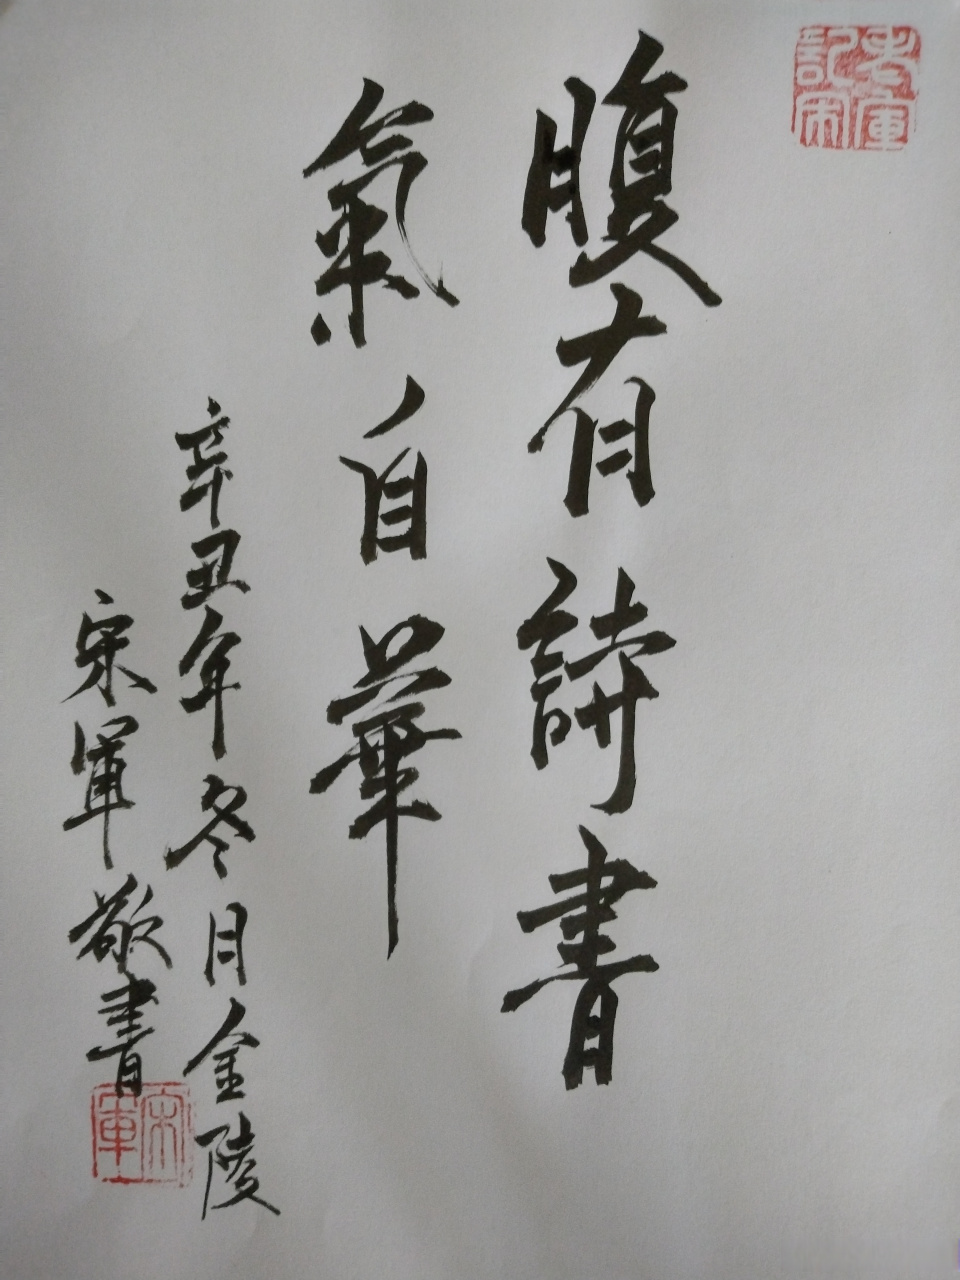 腹有詩書
氣自華
辛丑年冬月金陵
宋軍敬書
宋軍